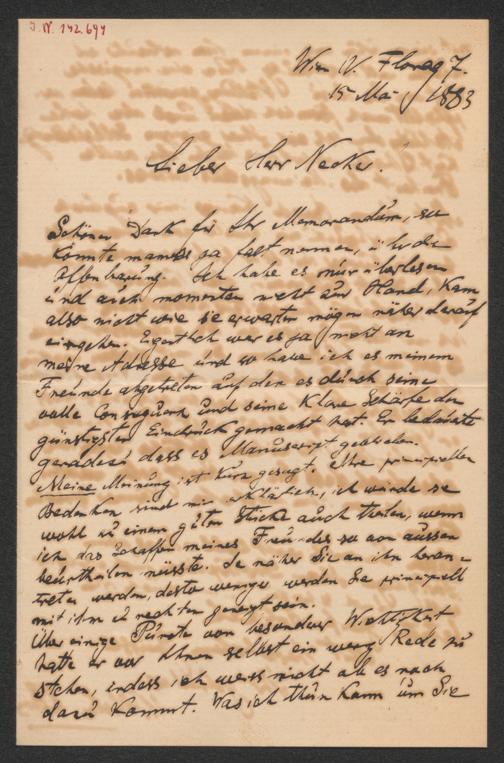 I.N. 142.694
Wien IV. Florag 7.
15 Mai 1883
Lieber Herr Necker!
Schönen Dank für Ihr Memorandum, so
konnte man es ja fast nennen, über die
Offenbarung. Ich habe es nur überlesen
und auch momentan nicht zur Hand, kann
also nicht wie Sie erwarten mögen näher darauf
eingehen. Eigentlich war es ja nicht an
meine Adresse und so habe ich es meinem
Freunde abgetreten auf den es durch seine
volle Consequenz und seine klare Schärfe den
günstigsten Eindruck gemacht hat. Er bedauerte
geradezu dass es Manuscript geblieben.
Meine Meinung ist kurz gesagt. Ihre principiellen
Bedenken sind mir erklärlich, ich würde sie
wohl zu einem guten Stücke auch theilen, wenn
ich das Schaffen meines Freundes so von aussen
beurtheilen müsste. Je näher Sie an ihn heran=
treten werden, desto weniger werden Sie principiell
mit ihm zu rechten geneigt sein.
Über einige Punkte von besonderer Wichtigkeit
hatte er vor Ihnen selbst ein wenig Rede zu
stehen, indess ich weiss nicht ob es noch
dazu kommt. Was ich thun kann um Sie